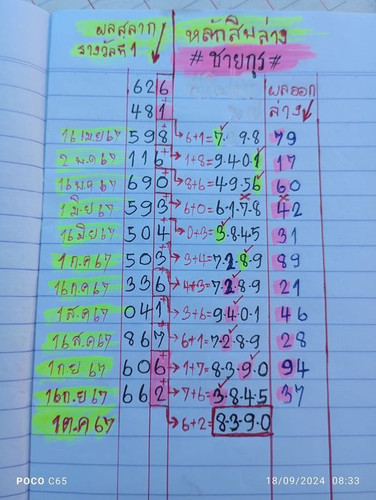 ผลสลาก หลักสิบล่าง
รางวัลที่ 1 # ชายกุร #
626 ผลออก
481 ล่าง
16 เมย 67 598 6+1=7. 9.8 79
2 พ.ค 67 116 1+8=9.4.0.1 17
16 พ.ค 67 690 8+6=4.9.5.6 60
1 มิย 67 593 6+0=6.1.7.8 42
16 มิย 67 504 0+3=3.8.4.5 31
1 ก.ค 67 503 3+4=7.2.8.9 89
16 ก.ค 67 336 4+3=7.2.8.9 21
1 ส.ค 67 041 3+6=9.4.0.1 46
16 ส.ค 67 867 6+1=7.2.8.9 28
1 ก.ย 67 606 1+7=8.3.9.0 94
16 ก.ย 67 662 7+6=3.8.4.5 37
1 ต.ค 67 6+2= 8.3.9.0
POCO C65 18/09/2024 08:33